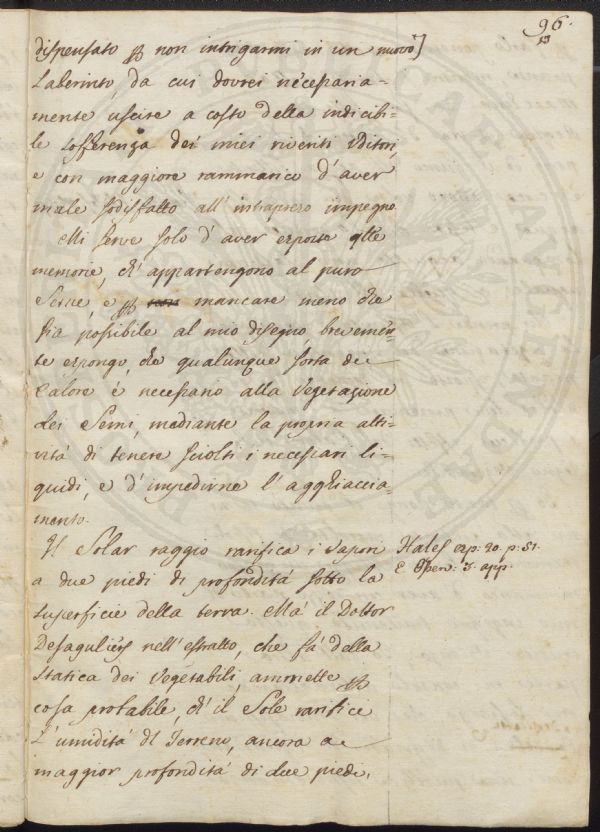 96.
dispensato p non intrigarmi in un nuovo]
Laberinto, da cui dovrei necessaria=
mente uscire a costo della indicibi=
le sofferenza dei miei riveriti Uditori,
e con maggiore rammarico d'aver
male sodisfatto all'intrapreso impegno
Mi serve solo d'aver esposte qte
memorie, ch'appartengono al puro
Seme, e p mancare meno che
sia possibile al mio disegno, brevemen=
te espongo, che qualunque sorta de
Calore è necessario alla Vegetazione
dei Semi, mediante la propria atti=
vità di tenere sciolti i necessari li=
quidi, e d'impedirne l'agghiaccia=
mento.
Il Solar raggio rarifica i Vapori
a due piedi di profondità sotto la
superficie della terra. Ma il Dottor
Desaguliers nell'estratto, che fà della
Statica dei Vegetabili, ammette p
cosa probabile, ch'il Sole rarifice
L'umidità dl Terreno, ancora a
maggior profondità di due piedi.
Hales exp: 20. p: 51.
E Sper: 3. app.